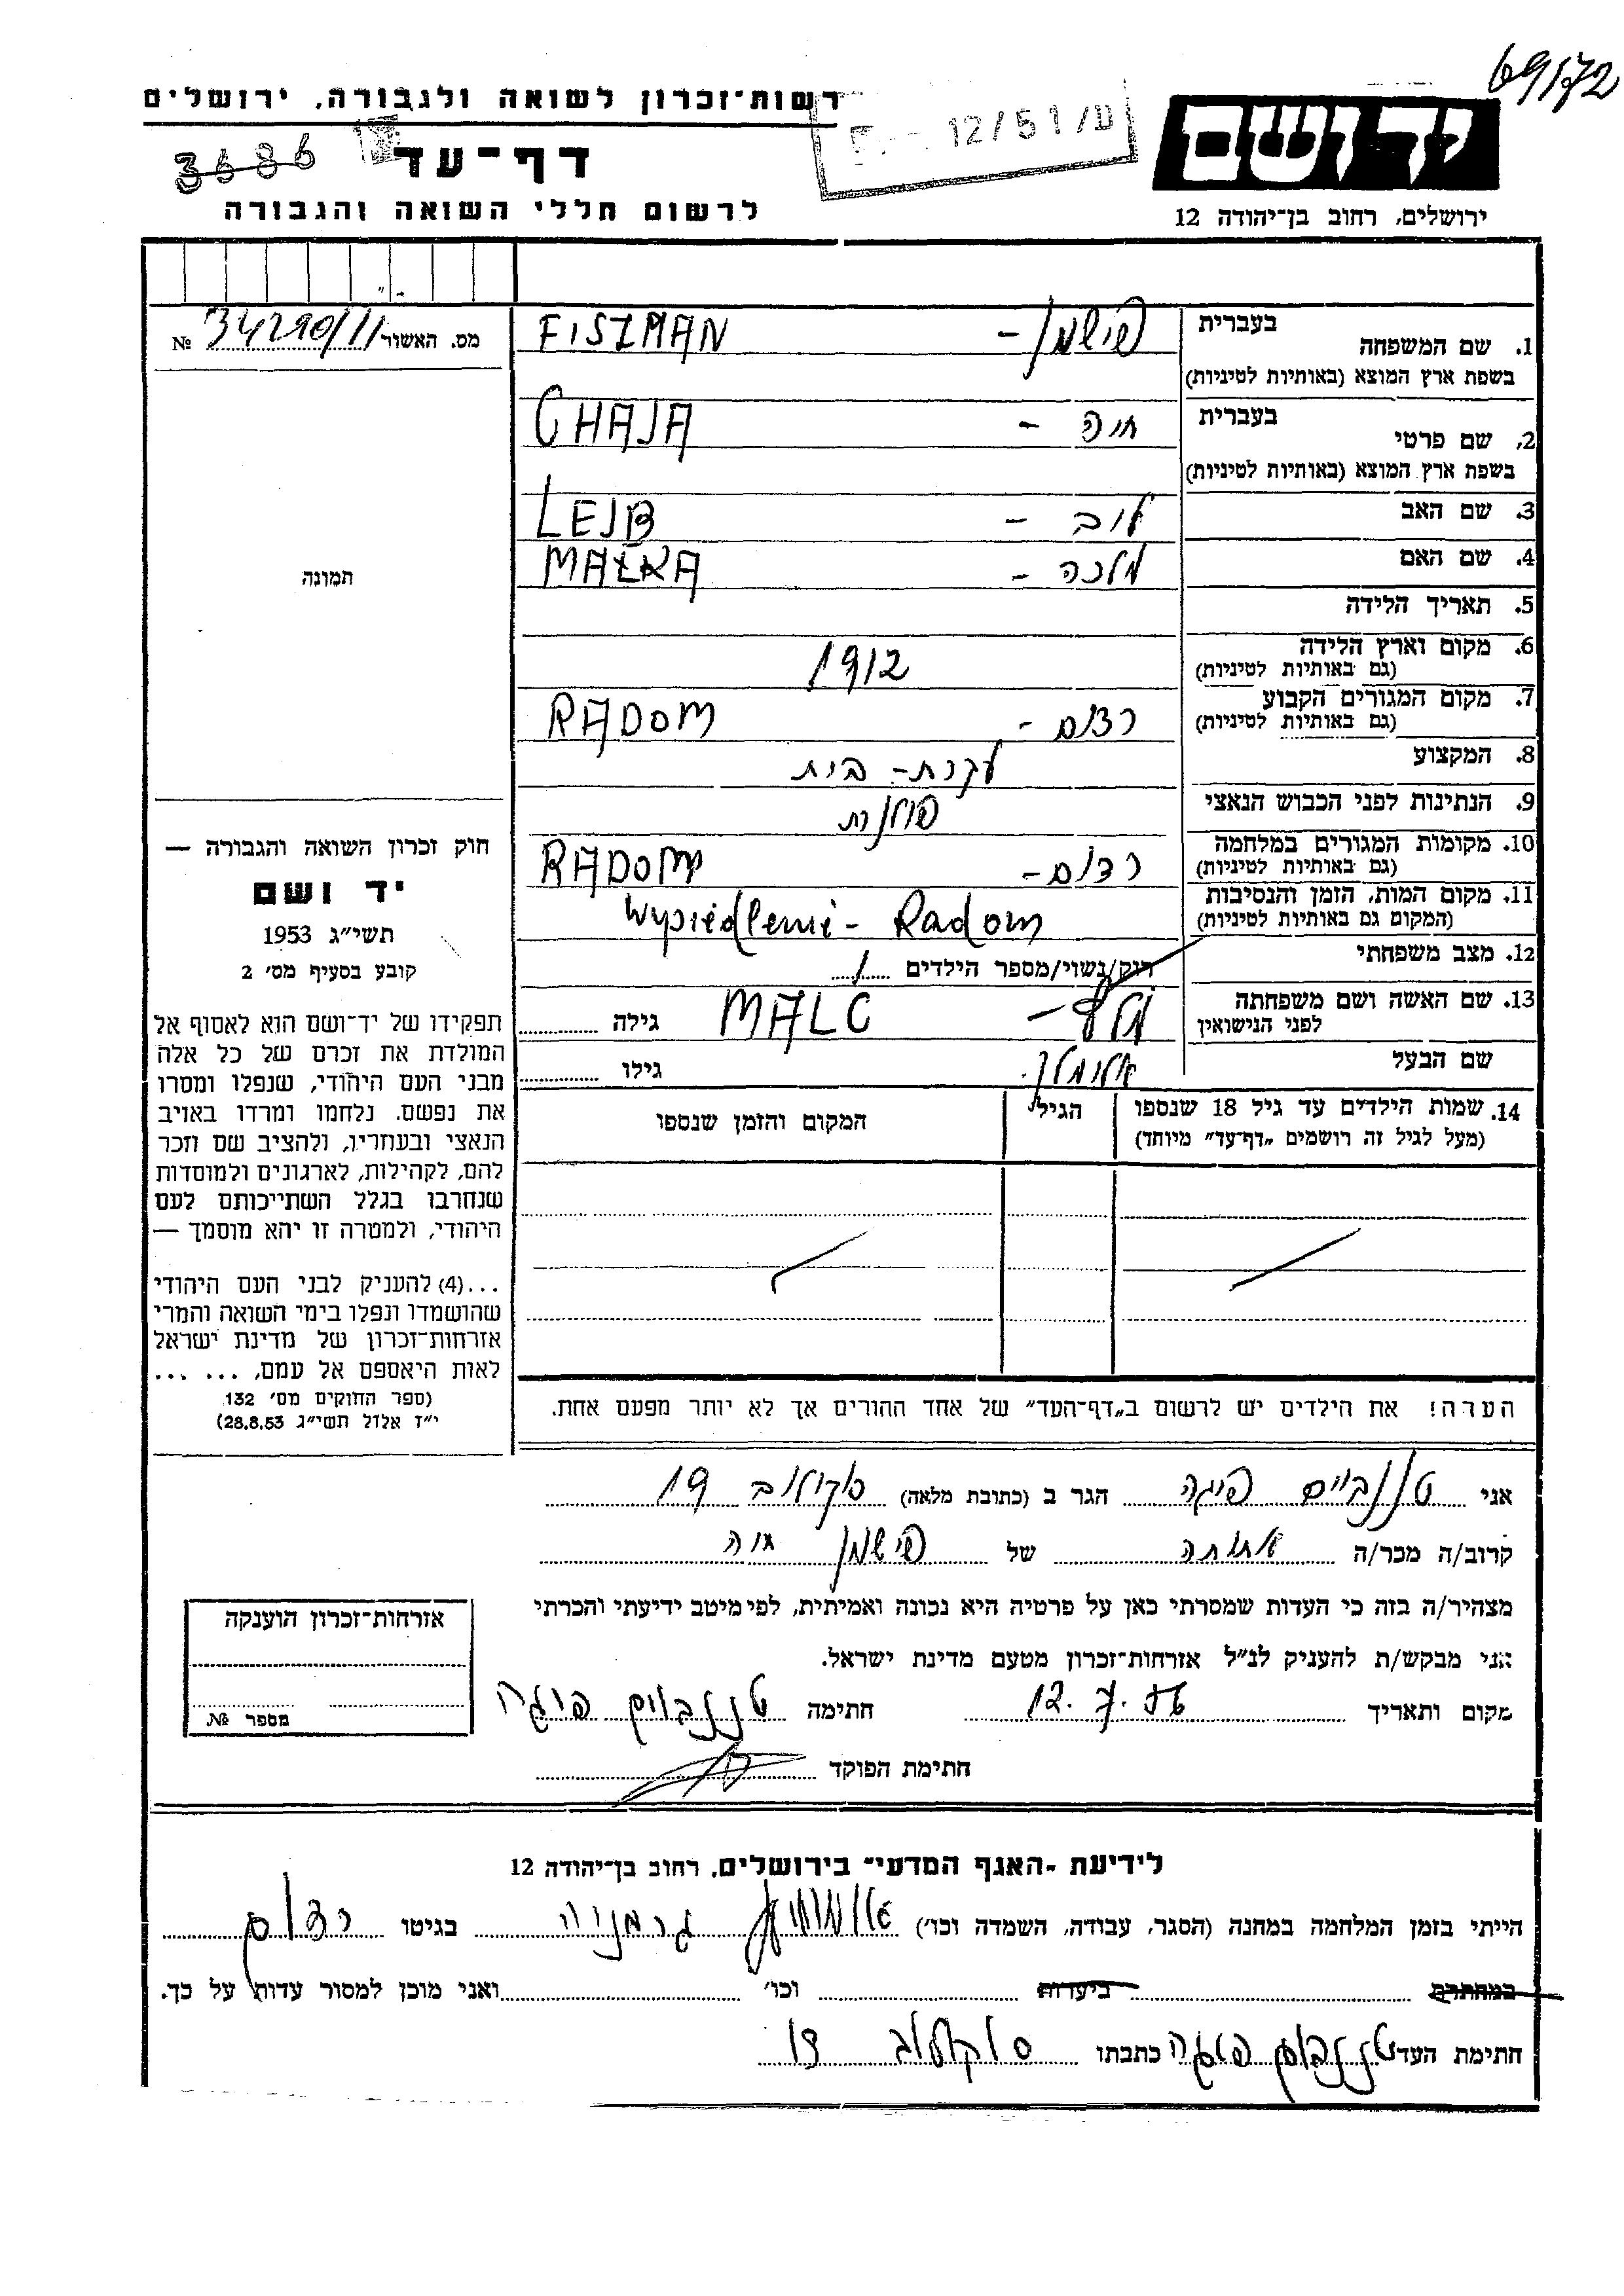 69/72
רשות־זכרון לשואה ולגבורה, ירושלים
יד ושם
12/51/ע
3686
דף־עד
לרשום חללי השואה והגבורה
ירושלים, רחוב בן־יהודה 12
מס. האשור 34290/11 №
1. שם המשפחה
בעברית
בשפת ארץ המוצא (באותיות לטיניות)
פישמן - FISZMAN
2. שם פרטי
בעברית
בשפת ארץ המוצא (באותיות לטיניות)
חיה - CHAJA
3. שם האב
ליב - LEJB
4. שם האם
מלכה - MAŁKA
5. תאריך הלידה
6. מקום וארץ הלידה
(גם באותיות לטיניות)
1912
7. מקום המגורים הקבוע
(גם באותיות לטיניות)
רדום - RADOM
8. המקצוע
עקרת-בית
9. הנתינות לפני הכבוש הנאצי
פולנית
10. מקומות המגורים במלחמה
(גם באותיות לטיניות)
רדום - RADOM
11. מקום המות, הזמן והנסיבות
(המקום גם באותיות לטיניות)
Wysiedleni - Radom
12. מצב משפחתי
רוק/נשוי/מספר הילדים 1
13. שם האשה ושם משפחתה
לפני הנישואין
מלץ - MALC גילה
שם הבעל
אלימלך גילו
14. שמות הילדים עד גיל 18 שנספו
(מעל לגיל זה רושמים „דף־עד” מיוחד)
הגיל
המקום והזמן שנספו
תמונה
חוק זכרון השואה והגבורה —
יד ושם
תשי״ג 1953
קובע בסעיף מס׳ 2
תפקידו של יד־ושם הוא לאסוף אל
המולדת את זכרם של כל אלה
מבני העם היהודי, שנפלו ומסרו
את נפשם. נלחמו ומרדו באויב
הנאצי ובעוזריו, ולהציב שם וזכר
להם, לקהילות, לארגונים ולמוסדות
שנחרבו בגלל השתייכותם לעם
היהודי, ולמטרה זו יהא מוסמך —
...(4) להעניק לבני העם היהודי
שהושמדו ונפלו בימי השואה והמרי
אזרחות־זכרון של מדינת ישראל
לאות היאספם אל עמם, ... ...
(ספר החוקים מס׳ 132
י״ז אלול תשי״ג 28.8.53)
הערה! את הילדים יש לרשום ב„דף־העד” של אחד ההורים אך לא יותר מפעם אחת.
אני טננבוים פייגה הגר ב (כתובת מלאה) סוקולוב 19
קרוב/ה מכר/ה אחותה של פישמן חיה
מצהיר/ה בזה כי העדות שמסרתי כאן על פרטיה היא נכונה ואמיתית, לפי מיטב ידיעתי והכרתי
אני מבקש/ת להעניק לנ״ל אזרחות־זכרון מטעם מדינת ישראל.
מקום ותאריך חתימה טננבוים פיגה
חתימת הפוקד
אזרחות־זכרון הוענקה
מספר №
לידיעת „האגף המדעי” בירושלים, רחוב בן־יהודה 12
הייתי בזמן המלחמה במחנה (הסגר, עבודה, השמדה וכו׳) גרמניה בגיטו רדום
במחתרת ביערות וכו׳ ואני מוכן למסור עדות על כך.
חתימת העד טננבוים פיגה כתבתו סוקולוב 19